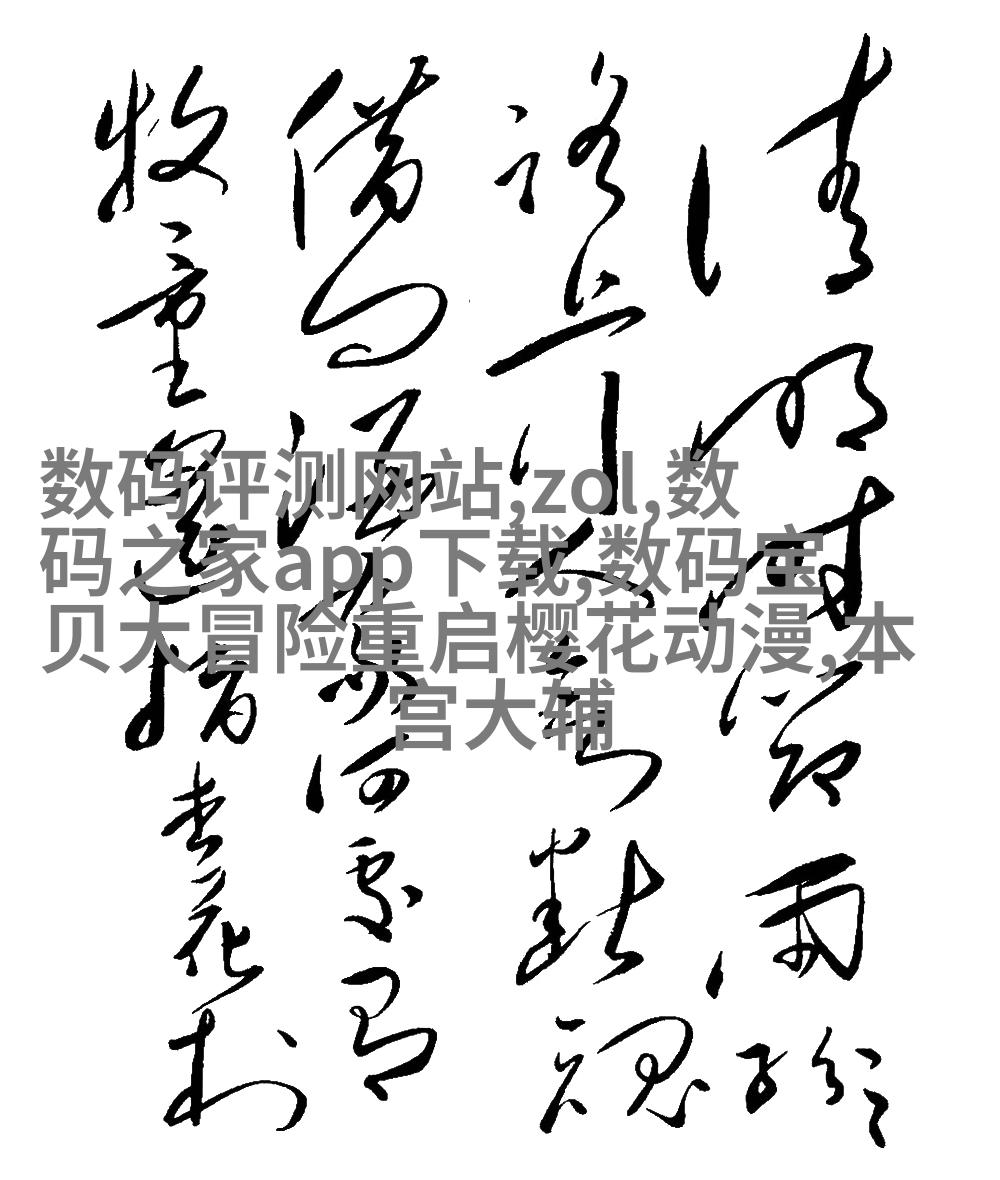 清明時節雨紛紛
路上行人欲斷魂
借問酒家何處有
牧童遙指杏花村
数码评测网站,zol,数
码之家app下载,数码宝
贝大冒险重启樱花动漫,本
宫大辅